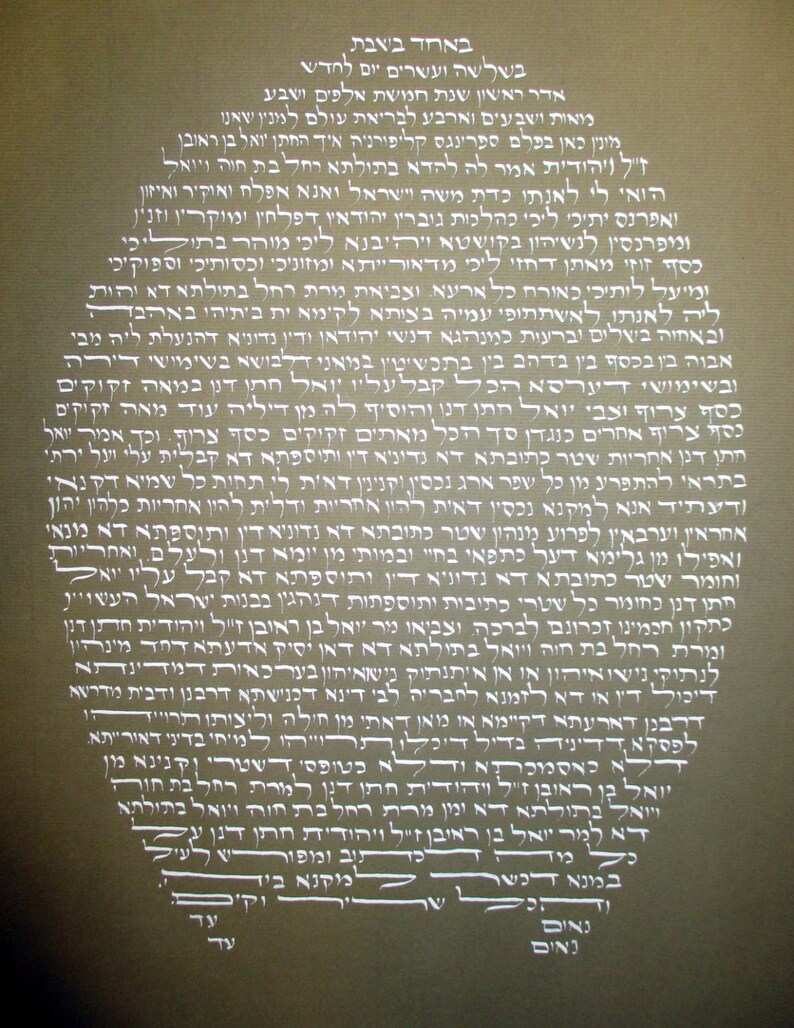 באחד בשבת
בשלשה ועשרים יום לחדש
אדר ראשון שנת חמשת אלפים ושבע
מאות ושבעים וארבע לבריאת עולם למנין שאנו
מונין כאן בפלם ספרינגס קליפורניה איך החתן יואל בן ראובן
ז״ל ויהודית אמר לה להדא בתולתא רחל בת חוה ויואל
הואי לי לאנתו כדת משה וישראל ואנא אפלח ואוקיר ואיזון
ואפרנס יתיכי ליכי כהלכות גוברין יהודאין דפלחין ומוקרין וזנין
ומפרנסין לנשיהון בקושטא ויהיבנא ליכי מוהר בתוליכי
כסף זוזי מאתן דחזי ליכי מדאורייתא ומזוניכי וכסותיכי וספוקיכי
ומיעל לותיכי כאורח כל ארעא. וצביאת מרת רחל בתולתא דא והות
ליה לאנתו, לאשתתופי עמיה בצותא לקימא ית ביתיהו באהבה
ובאחוה בשלום וברעות כמנהגא דנשי יהודאן ודין נדוניא דהנעלת ליה מבי
אבוה בין בכסף בין בדהב בין בתכשיטין במאני דלבושא בשימושי דירה
ובשימושי דערסא הכל קבל עליו יואל חתן דנן במאה זקוקים
כסף צרוף וצבי יואל חתן דנן והוסיף לה מן דיליה עוד מאה זקוקים
כסף צרוף אחרים כנגדן סך הכל מאתים זקוקים כסף צרוף. וכך אמר יואל
חתן דנן אחריות שטר כתובתא דא נדוניא דין ותוספתא דא קבלית עלי ועל ירתי
בתראי להתפרע מן כל שפר ארג נכסין וקנינין דאית לי תחות כל שמיא דקנאי
ודעתיד אנא למקנא נכסין דאית להון אחריות ודלית להון אחריות כלהון יהון
אחראין וערבאין לפרוע מנהון שטר כתובתא דא נדוניא דין ותוספתא דא מנאי
ואפילו מן גלימא דעל כתפאי בחיי ובמותי מן יומא דנן ולעלם. ואחריות
וחומר שטר כתובתא דא נדוניא דין ותוספתא דא קבל עליו יואל
חתן דנן כחומר כל שטרי כתובות ותוספתות דנהגין בבנות ישראל העשויין
כתקון חכמינו זכרונם לברכה. וצביאו מר יואל בן ראיובן ז״ל ויהודית חתן דנן
ומרת רחל בת חוה ויואל בתולתא דא דאן יסיק אדעתא דחד מינהון
לנתוקי נישואיהון או אן איתנתוק נישואיהון בערכאות דמדינתא
דיכול דין או דא לזמנא לחבריה לבי דינא דכנישתא דרבנן ודבית מדרשא
דרבנן דארעתא דקיימא או מאן דאתי מן חילה וליצותו תרוייהו
לפסקא דדיניה בדיל דיכלו תרוייהו למיחי בדיני דאורייתא.
דלא כאסמכתא ודלא כטופסי דשטרי וקנינא מן
יואל בן ראיובן ז״ל ויהודית חתן דנן למרת רחל בת חוה
ויואל בתולתא דא ומן מרת רחל בת חוה ויואל בתולתא
דא למר יואל בן ראיובן ז״ל ויהודית חתן דנן על
כל מדה דכתוב ומפורש לעיל
במנא דכשר למקנא ביה.
והכל שריר וקים.
נאום עד
נאום עד